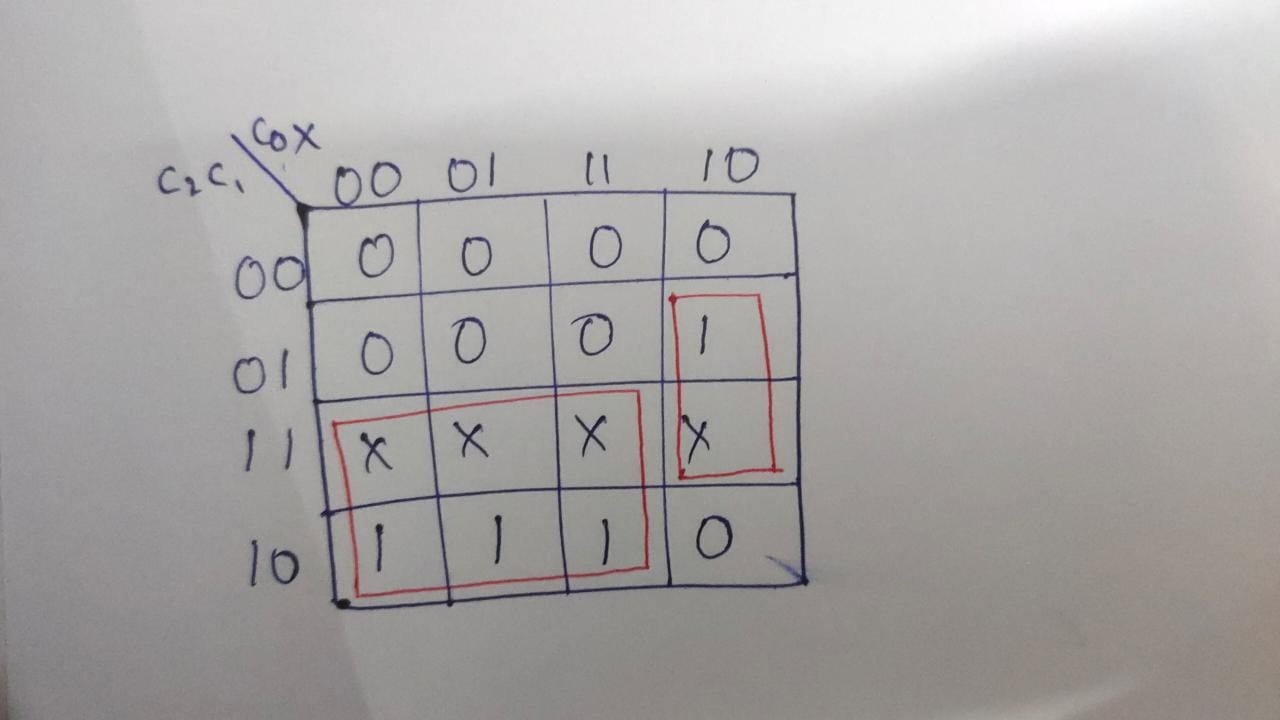 C0X
C2C1 00 01 11 10
00 0 0 0 0
01 0 0 0 1
11 X X X X
10 1 1 1 0